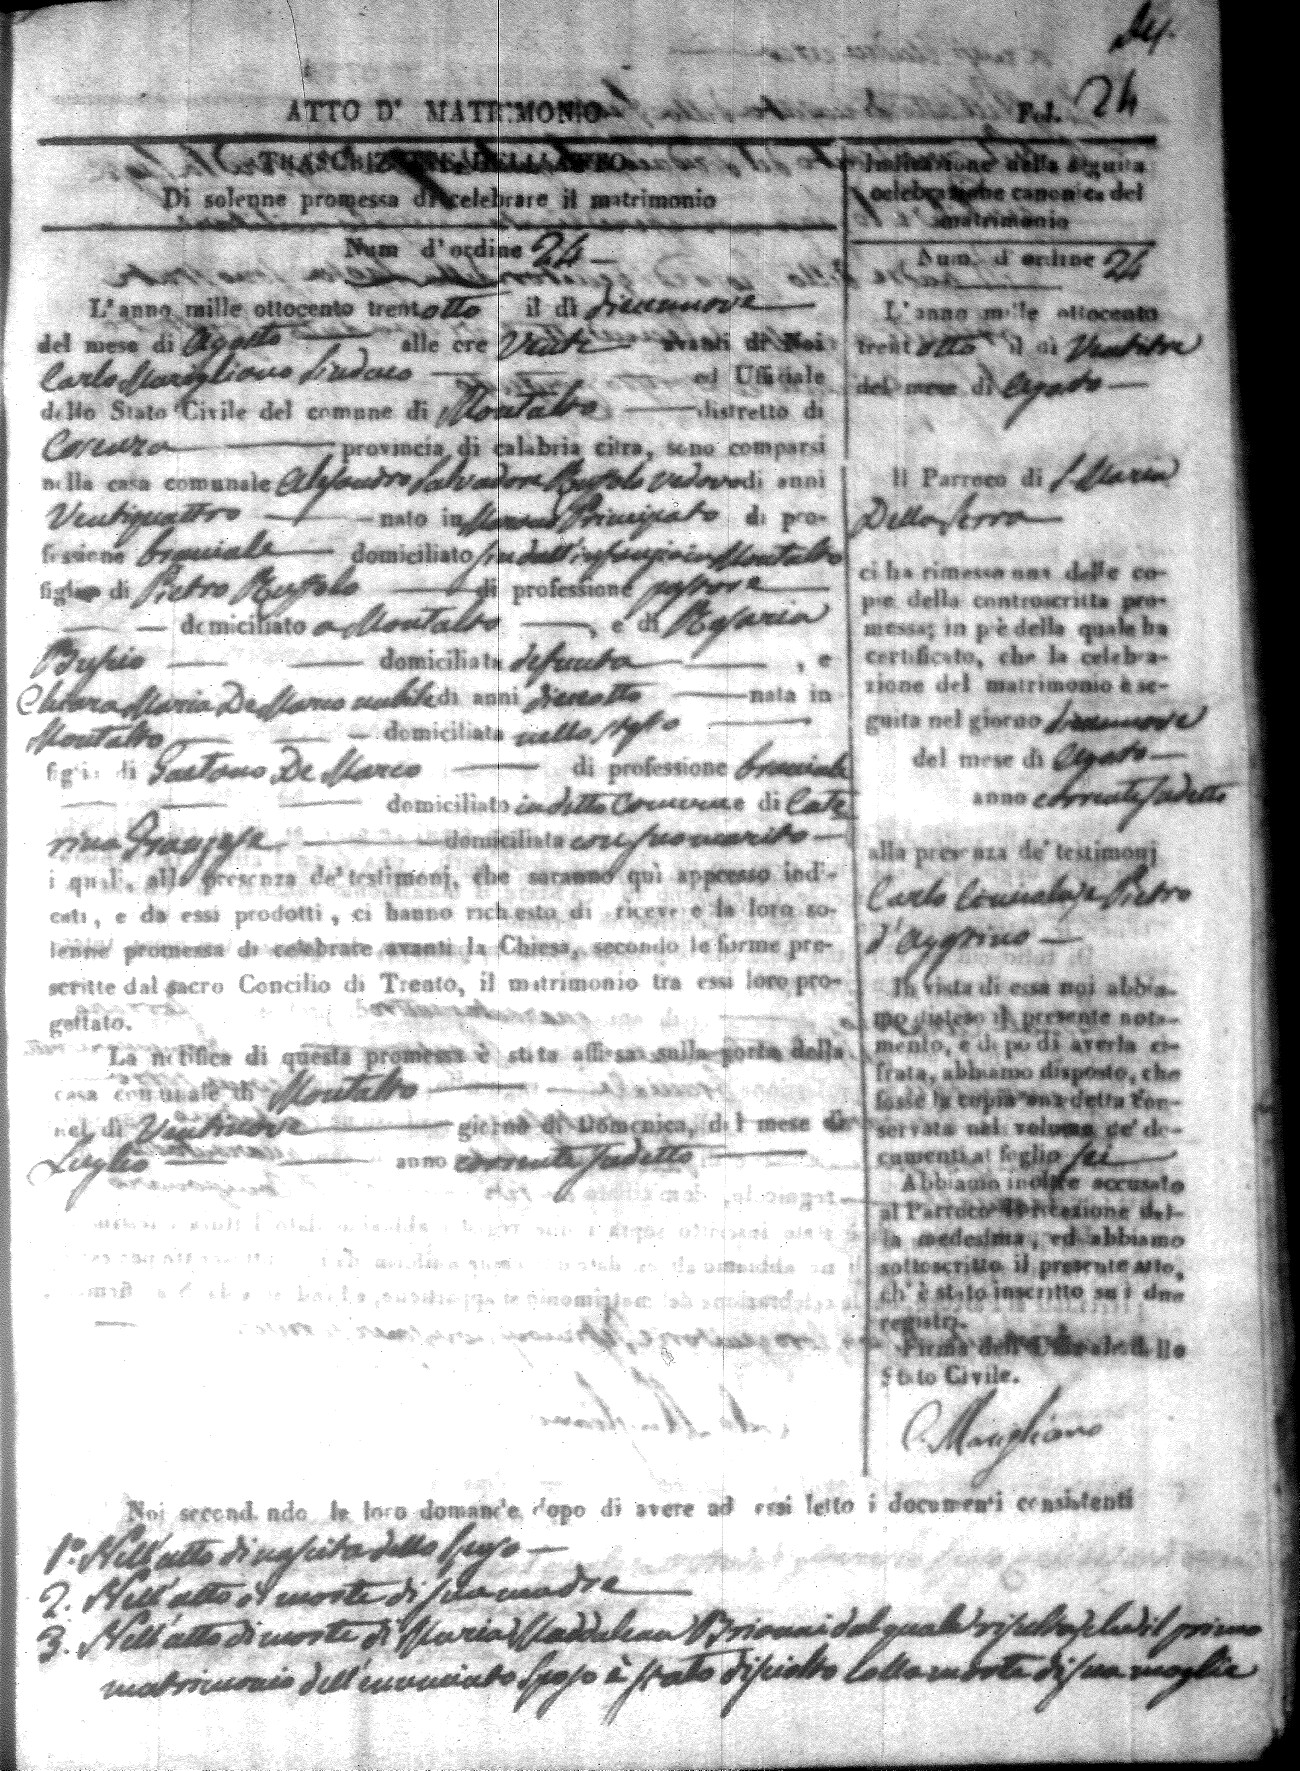 24
ATTO D' MATRIMONIO
Fol. 24
TRASCRIZIONE DELL'ATTO
Di solenne promessa di celebrare il matrimonio
Num d'ordine 24
L'anno mille ottocento trentotto il dì diciannove
del mese di Agosto alle ore Venti avanti di Noi
Carlo Marigliano Sindaco ed Ufficiale
dello Stato Civile del comune di Montalto distretto di
Cosenza provincia di calabria citra, sono comparsi
nella casa comunale Alessandro Salvadore vedovo di anni
Ventiquattro nato in Principato di pro-
fessione bracciale domiciliato sin dall'infanzia in Montalto
figlio di Pietro di professione
domiciliato a Montalto , e di Rosaria
domiciliata defunta , e
Chiara Maria De Marco nubile di anni dieciotto nata in
Montalto domiciliata nello stesso
figlia di Gaetano De Marco di professione bracciale
domiciliato in detto Comune e di Cate
rina domiciliata con suo marito
i quali, alla presenza de' testimonj, che saranno quì appresso indi-
cati, e da essi prodotti, ci hanno richiesto di ricevere la loro so-
lenne promessa di celebrare avanti la Chiesa, secondo le forme pre-
scritte dal sacro Concilio di Trento, il matrimonio tra essi loro pro-
gettato.
La notifica di questa promessa è stata affissa sulla porta della
casa comunale di Montalto
nel dì Ventinove giorno di Domenica, del mese di
Luglio anno corrente sudetto
Indicazione della seguita
celebrazione canonica del
matrimonio
Num. d'ordine 24
L'anno mille ottocento
trentotto il dì Ventitre
del mese di Agosto
Il Parroco di S. Maria
Della Serra
ci ha rimesso una delle co-
pie della controscritta pro-
messa; in piè della quale ha
certificato, che la celebra-
zione del matrimonio è se-
guita nel giorno diciannove
del mese di Agosto
anno corrente sudetto
alla presenza de' testimonj
Carlo e Pietro
d'Aggrino
In vista di essa noi abbia-
mo disteso il presente nota-
mento, e dopo di averla ci-
frata, abbiamo disposto, che
fosse la copia anzidetta con-
servata nel volume de' do-
cumenti al foglio sei
Abbiamo inoltre accusato
al Parroco la ricezione del-
la medesima, ed abbiamo
sottoscritto il presente atto,
ch' è stato inscritto su i due
registri.
Firma dell'Uffiziale dello
Stato Civile.
C. Marigliano
Noi secondando le loro domande dopo di avere ad essi letto i documenti consistenti
1º. Nell'atto di nascita dello sposo
2. Nell'atto di morte di sua madre
3. Nell'atto di morte di Maria Maddalena dal quale risulta che il primo
matrimonio dell'enunciato sposo è stato disciolto colla morte di sua moglie